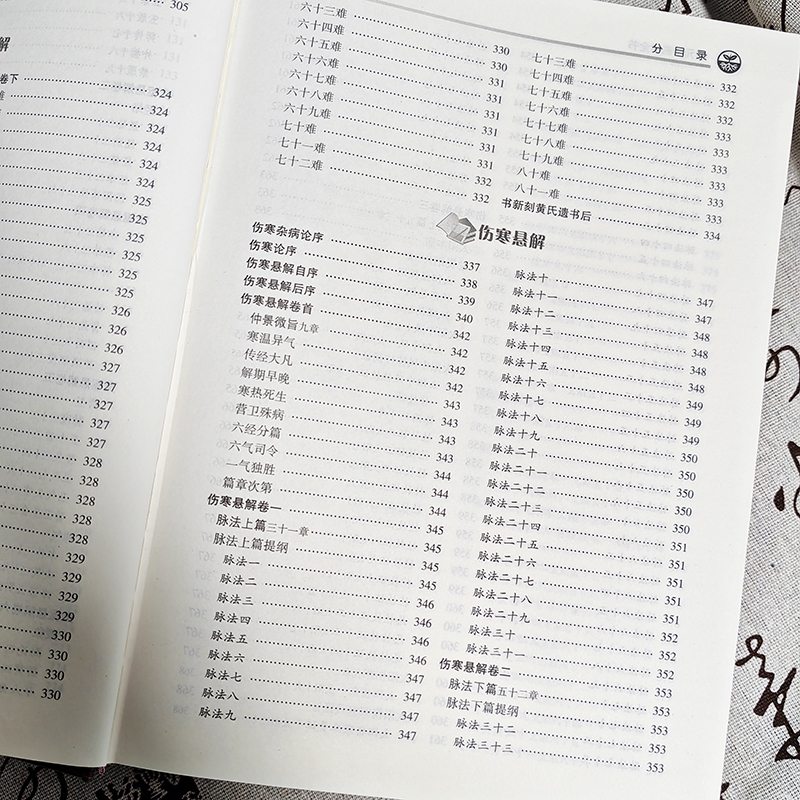 305
解
卷下
324
难
324
324
324
324
324
325
325
325
325
325
325
326
326
326
327
327
327
327
327
328
328
328
328
328
329
329
329
329
330
330
330
330
分目录
六十三难 330
六十四难 330
六十五难 331
六十六难 331
六十七难 331
六十八难 331
六十九难 331
七十难 331
七十一难 332
七十二难 332
七十三难 332
七十四难 332
七十五难 332
七十六难 333
七十七难 333
七十八难 333
七十九难 333
八十难 333
八十一难 333
书新刻黄氏遗书后 334
伤寒悬解
伤寒杂病论序 337
伤寒论序 338
伤寒悬解自序 339
伤寒悬解后序 340
伤寒悬解卷首 342
仲景微旨九章 342
寒温异气 342
传经大凡 342
解期早晚 343
寒热死生 343
营卫殊病 343
六经分篇 343
六气司令 344
一气独胜 344
篇章次第 344
伤寒悬解卷一 345
脉法上篇三十一章 345
脉法上篇提纲 345
脉法一 345
脉法二 346
脉法三 346
脉法四 346
脉法五 346
脉法六 347
脉法七 347
脉法八 347
脉法九 347
脉法十 347
脉法十一 347
脉法十二 348
脉法十三 348
脉法十四 348
脉法十五 348
脉法十六 349
脉法十七 349
脉法十八 349
脉法十九 350
脉法二十 350
脉法二十一 350
脉法二十二 350
脉法二十三 350
脉法二十四 351
脉法二十五 351
脉法二十六 351
脉法二十七 351
脉法二十八 351
脉法二十九 352
脉法三十 352
脉法三十一 352
伤寒悬解卷二 353
脉法下篇五十二章 353
脉法下篇提纲 353
脉法三十二 353
脉法三十三 353